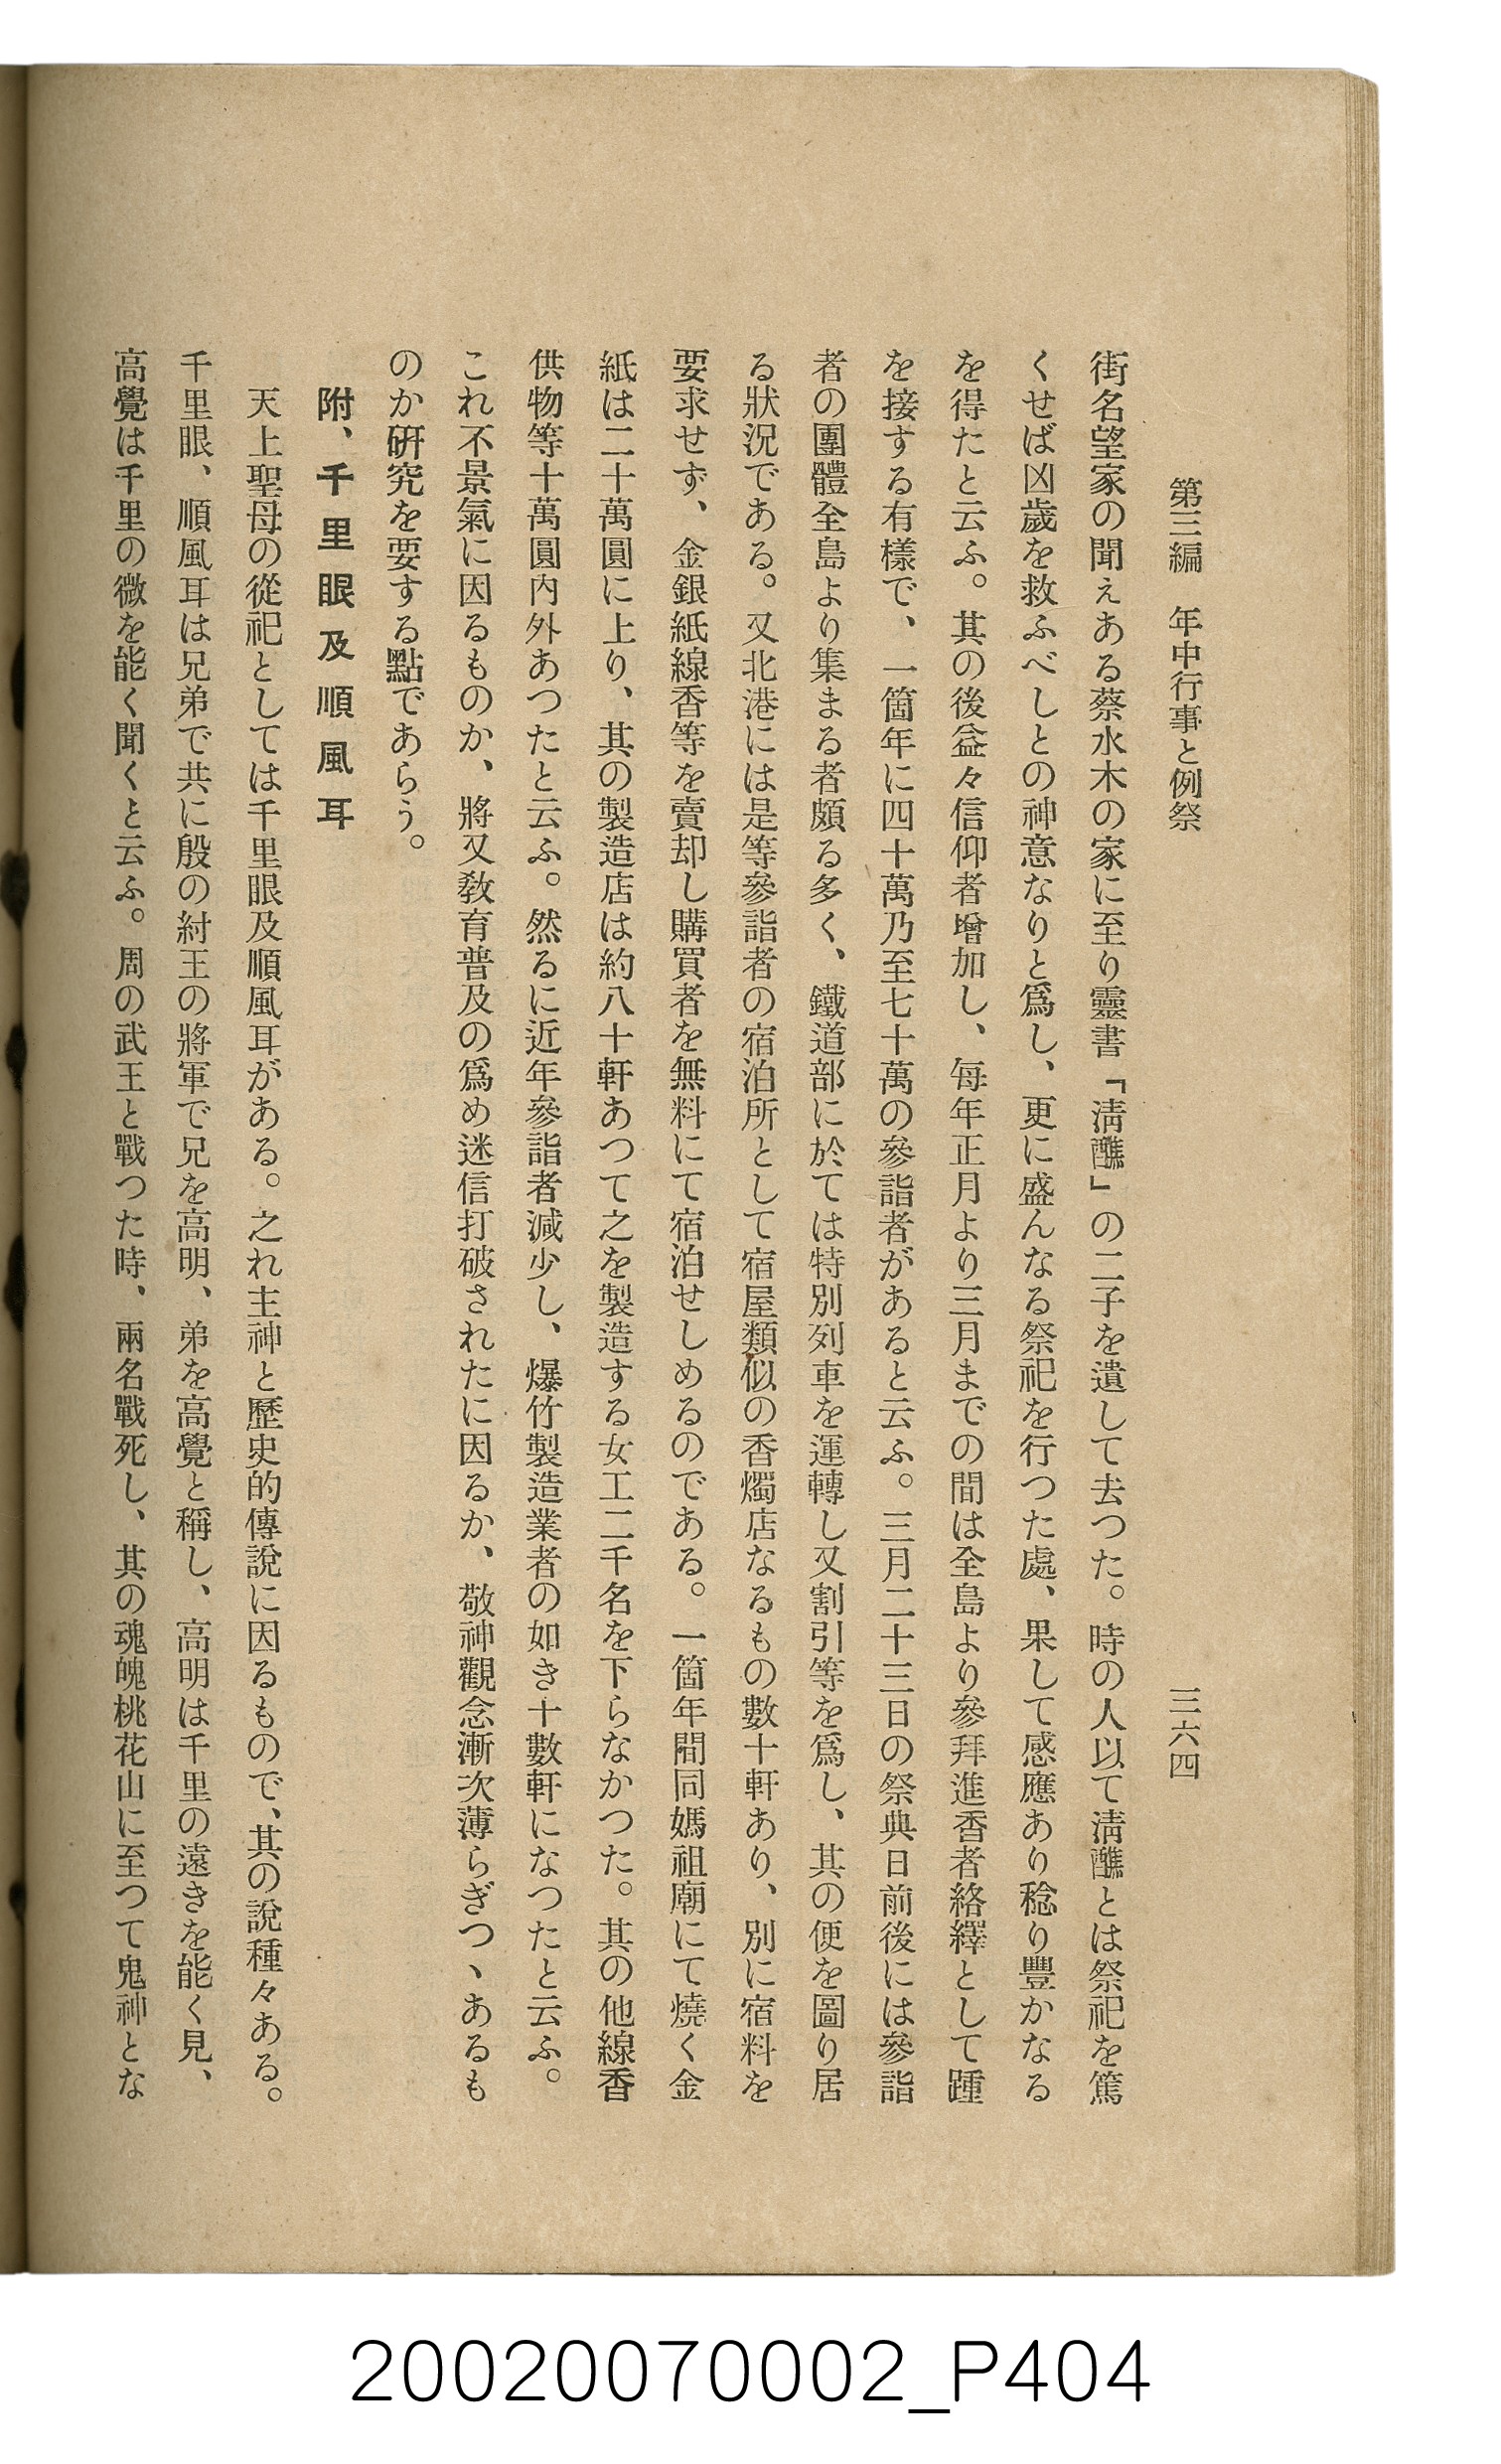 第三編　年中行事と例祭　三六四
街名望家の聞ぇある蔡水木の家に至り靈書「淸醮」の二子を遺して去つた。時の人以て淸醮とは祭祀を篤
くせば凶歲を救ふべしとの神意なりと爲し、更に盛んなる祭祀を行つた處、果して感應あり稔り豐かなる
を得たと云ふ。其の後益々信仰者增加し、每年正月より三月までの間は全島より參拜進香者絡繹として踵
を接する有樣で、一箇年に四十萬乃至七十萬の參詣者があると云ふ。三月二十三日の祭典日前後には參詣
者の團體全島より集まる者頗る多く、鐵道部に於ては特別列車を運轉し又割引等を爲し、其の便を圖り居
る狀況である。又北港には是等參詣者の宿泊所として宿屋類似の香燭店なるもの數十軒あり、別に宿料を
要求せず、金銀紙線香等を賣却し購買者を無料にて宿泊せしめるのである。一箇年間同媽祖廟にて燒く金
紙は二十萬圓に上り、其の製造店は約八十軒あつて之を製造する女工二千名を下らなかつた。其の他線香
供物等十萬圓內外あつたと云ふ。然るに近年參詣者減少し、爆竹製造業者の如き十數軒になつたと云ふ。
これ不景氣に因るものか、將又敎育普及の爲め迷信打破されたに因るか、敬神觀念漸次薄らぎつヽあるも
のか硏究を要する點であらう。
附、千里眼及順風耳
天上聖母の從祀としては千里眼及順風耳がある。之れ主神と歷史的傳說に因るもので、其の說種々ある。
千里眼、順風耳は兄弟で共に殷の紂王の將軍で兄を高明、弟を高覺と稱し、高明は千里の遠きを能く見、
高覺は千里の微を能く聞くと云ふ。周の武王と戰つた時、兩名戰死し、其の魂魄桃花山に至つて鬼神とな
20020070002_P404